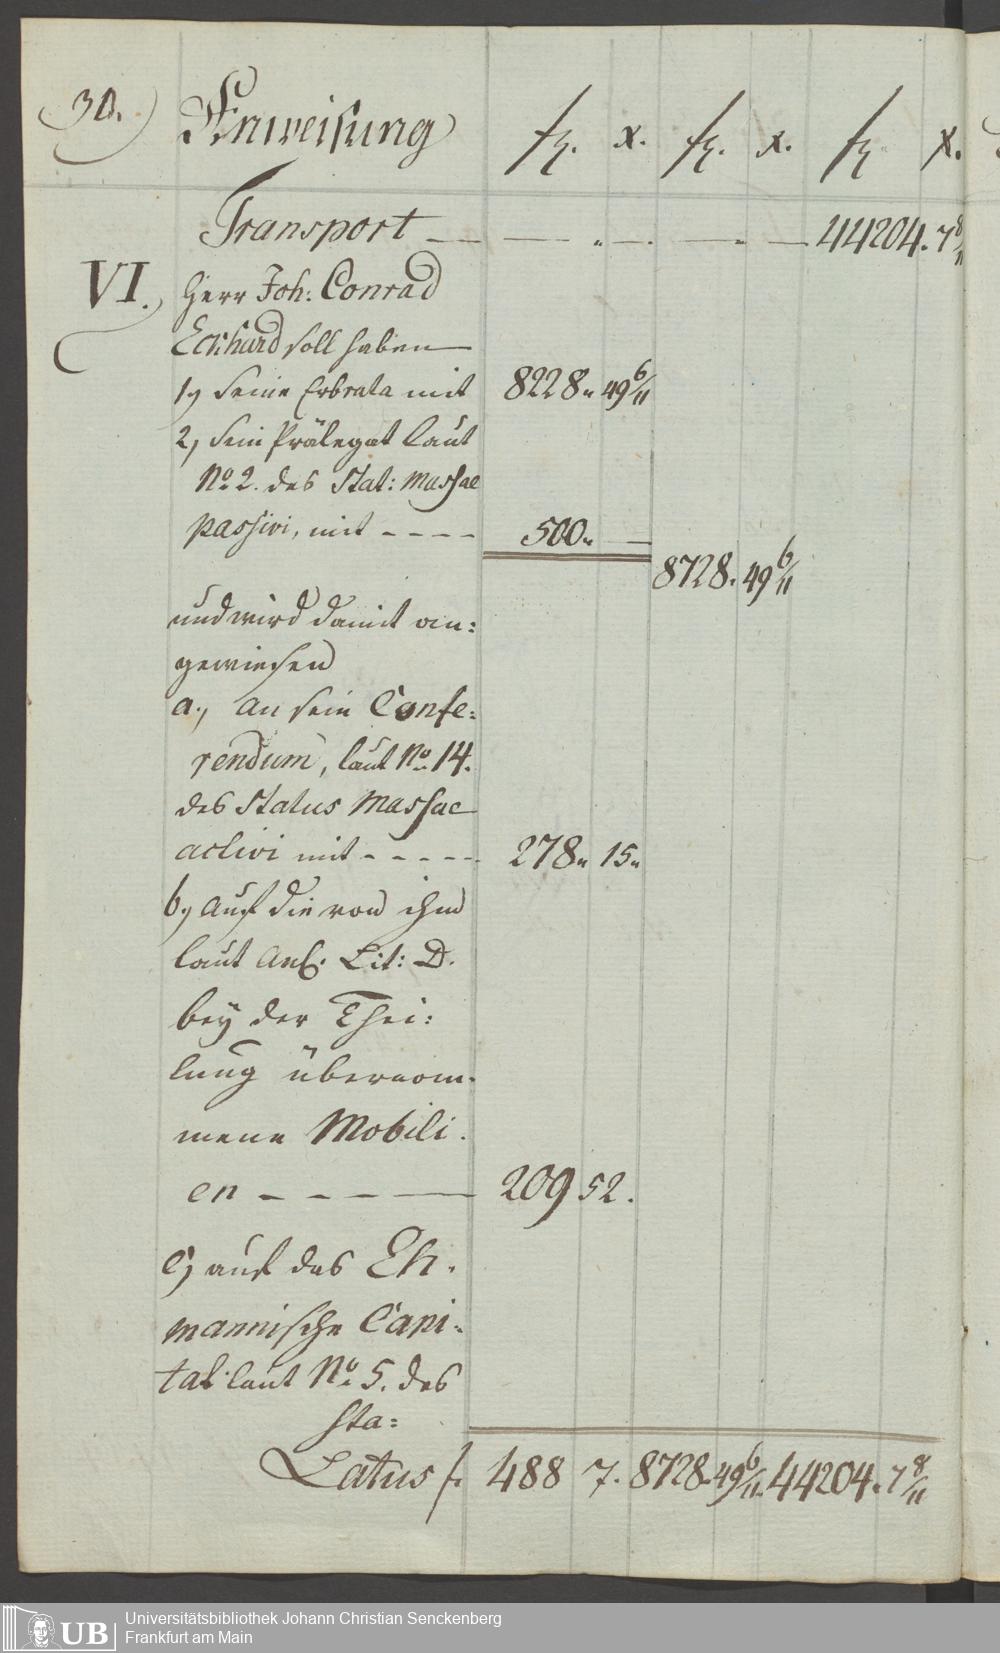 30. Anweisung fl. x. fl. x. fl x.
Transport — — „ — — „ — 44204. 7 8/11
VI. Herr Joh: Conrad
Eckhard soll haben
1, seine Erbrata mit 8228„ 49 6/11
2, sein Prälegat laut
No. 2. des Stat: Massae
passivi, mit - - - - 500„ —
8728. 49 6/11
und wird damit an:
gewiesen
a., an sein Confe:
rendum, laut No. 14.
des Status Massae
activi mit - - - - - 278„ 15„
b., auf die von ihm
laut Anl. Lit: D.
bey der Thei:
lung übernom:
mene Mobili:
en - - - — 209 52.
c, auf das Eh:
mannische Capi:
tal laut No. 5. des
Sta:
Latus f. 488 7. 8728. 49 6/11. 44204. 7 8/11
UB Universitätsbibliothek Johann Christian Senckenberg
Frankfurt am Main